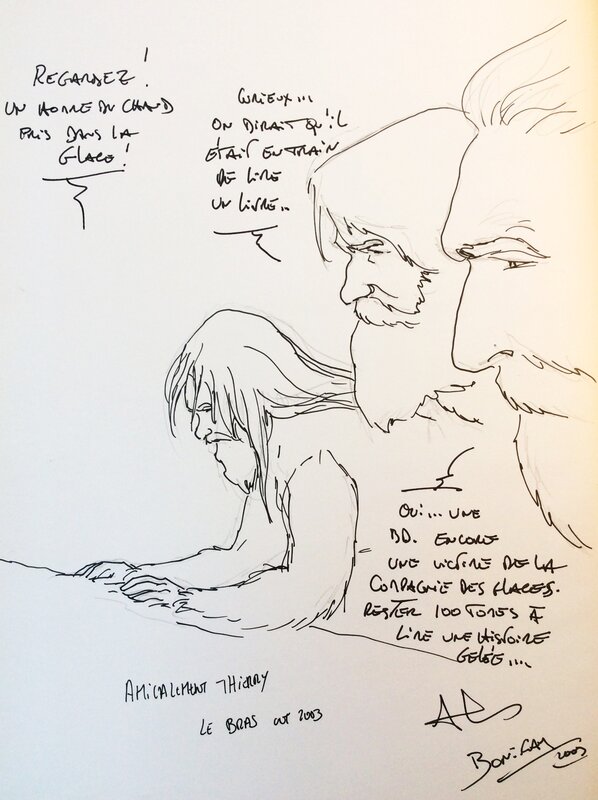 REGARDEZ!
UN HOMME DU CHAUD
PRIS DANS LA
GLACE!
CURIEUX...
ON DIRAIT QU'IL
ÉTAIT EN TRAIN
DE LIRE
UN LIVRE..
OUI... UNE
BD. ENCORE
UNE VICTIME DE LA
COMPAGNIE DES GLACES.
RESTER 100 TOMES À
LIRE UNE HISTOIRE
GELÉE....
AMICALEMENT THIERRY
LE BRAS OCT 2003
BONIFAY
2003